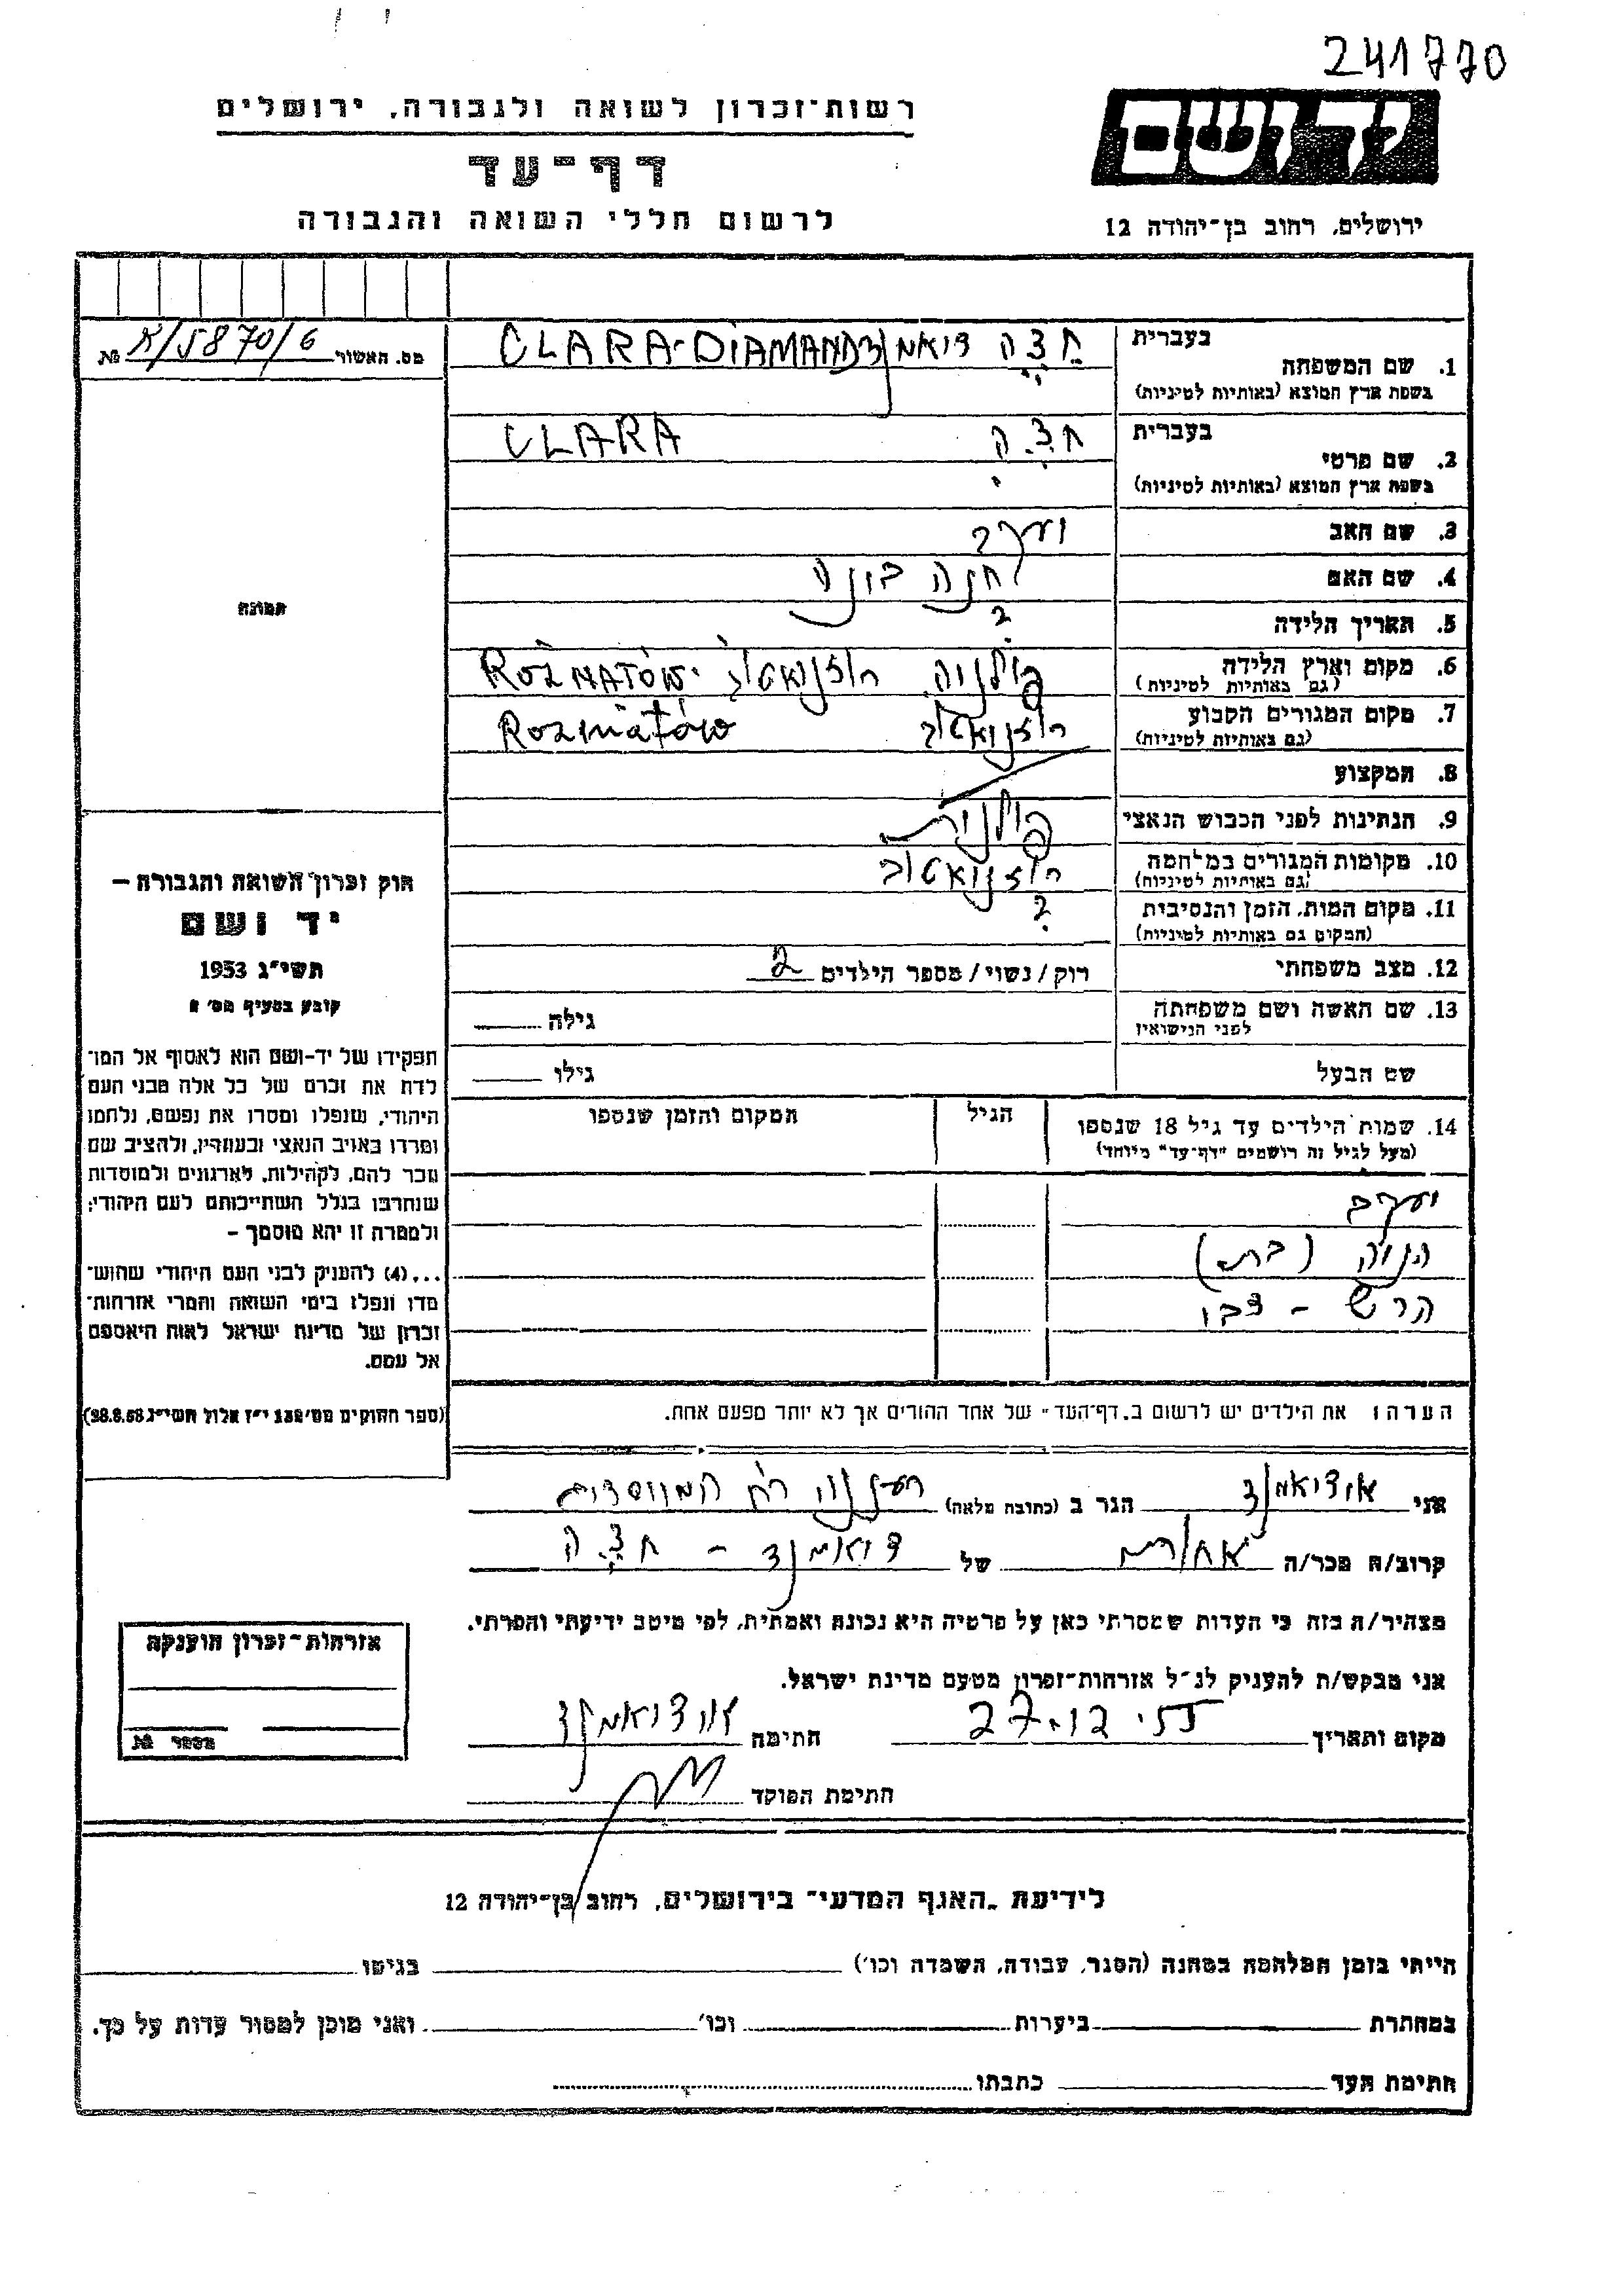 241770
רשות־זכרון לשואה ולגבורה, ירושלים
יד ושם
דף־עד
לרשום חללי השואה והגבורה
ירושלים, רחוב בן־יהודה 12
מס. האשור א/5870/6 №
בעברית
1. שם המשפחה
בשפת ארץ המוצא (באותיות לטיניות)
חצה דיאמנד CLARA-DIAMAND
בעברית
2. שם פרטי
בשפת ארץ המוצא (באותיות לטיניות)
חצה CLARA
3. שם האב יעקב
4. שם האם חנה בונה
5. תאריך הלידה ?
6. מקום וארץ הלידה
(גם באותיות לטיניות)
פולניה רוזניאטוב ROŻNATÓW
7. מקום המגורים הקבוע
(גם באותיות לטיניות)
רוזניאטוב Rozniatów
8. המקצוע
9. הנתינות לפני הכבוש הנאצי פולנית
10. מקומות המגורים במלחמה
(גם באותיות לטיניות)
רוזניאטוב
11. מקום המות, הזמן והנסיבות
(המקום גם באותיות לטיניות)
?
12. מצב משפחתי רוק/נשוי/מספר הילדים 2
13. שם האשה ושם משפחתה
לפני הנישואין
גילה
שם הבעל גילו
14. שמות הילדים עד גיל 18 שנספו
(מעל לגיל זה רושמים "דף־עד" מיוחד)
הגיל
המקום והזמן שנספו
יעקב
(בת)
הרש – צבי
הערה: את הילדים יש לרשום ב„דף־העד" של אחד ההורים אך לא יותר מפעם אחת.
תמונה
חוק זכרון השואה והגבורה –
יד ושם
תשי"ג 1953
קובע בסעיף מס' 2
תפקידו של יד־ושם הוא לאסוף אל המו־
לדת את זכרם של כל אלה מבני העם
היהודי, שנפלו ומסרו את נפשם, נלחמו
ומרדו באויב הנאצי ובעוזריו, ולהציב שם
וזכר להם, לקהילות, לארגונים ולמוסדות
שנחרבו בגלל השתייכותם לעם היהודי;
ולמטרה זו יהא מוסמך –
...(4) להעניק לבני העם היהודי שהוש־
מדו ונפלו בימי השואה והמרי אזרחות־
זכרון של מדינת ישראל לאות היאספם
אל עמם.
(ספר החוקים מס' 132 י"ז אלול תשי"ג 28.8.53)
אני דיאמנד הגר ב (כתובה מלאה) רעננה
קרוב/ה מכר/ה של דיאמנד – חצה
מצהיר/ה בזה כי העדות שמסרתי כאן על פרטיה היא נכונה ואמתית, לפי מיטב ידיעתי והכרתי.
אני מבקש/ת להעניק לנ"ל אזרחות־זכרון מטעם מדינת ישראל.
מקום ותאריך 27.12.55 חתימה דיאמנד
חתימת הפוקד
אזרחות־זכרון הוענקה
מספר №
לידיעת „האגף המדעי" בירושלים, רחוב בן־יהודה 12
הייתי בזמן המלחמה במחנה (הסגר, עבודה, השמדה וכו') בגיטו
במחתרת ביערות וכו' ואני מוכן למסור עדות על כך.
חתימת העד כתבתו